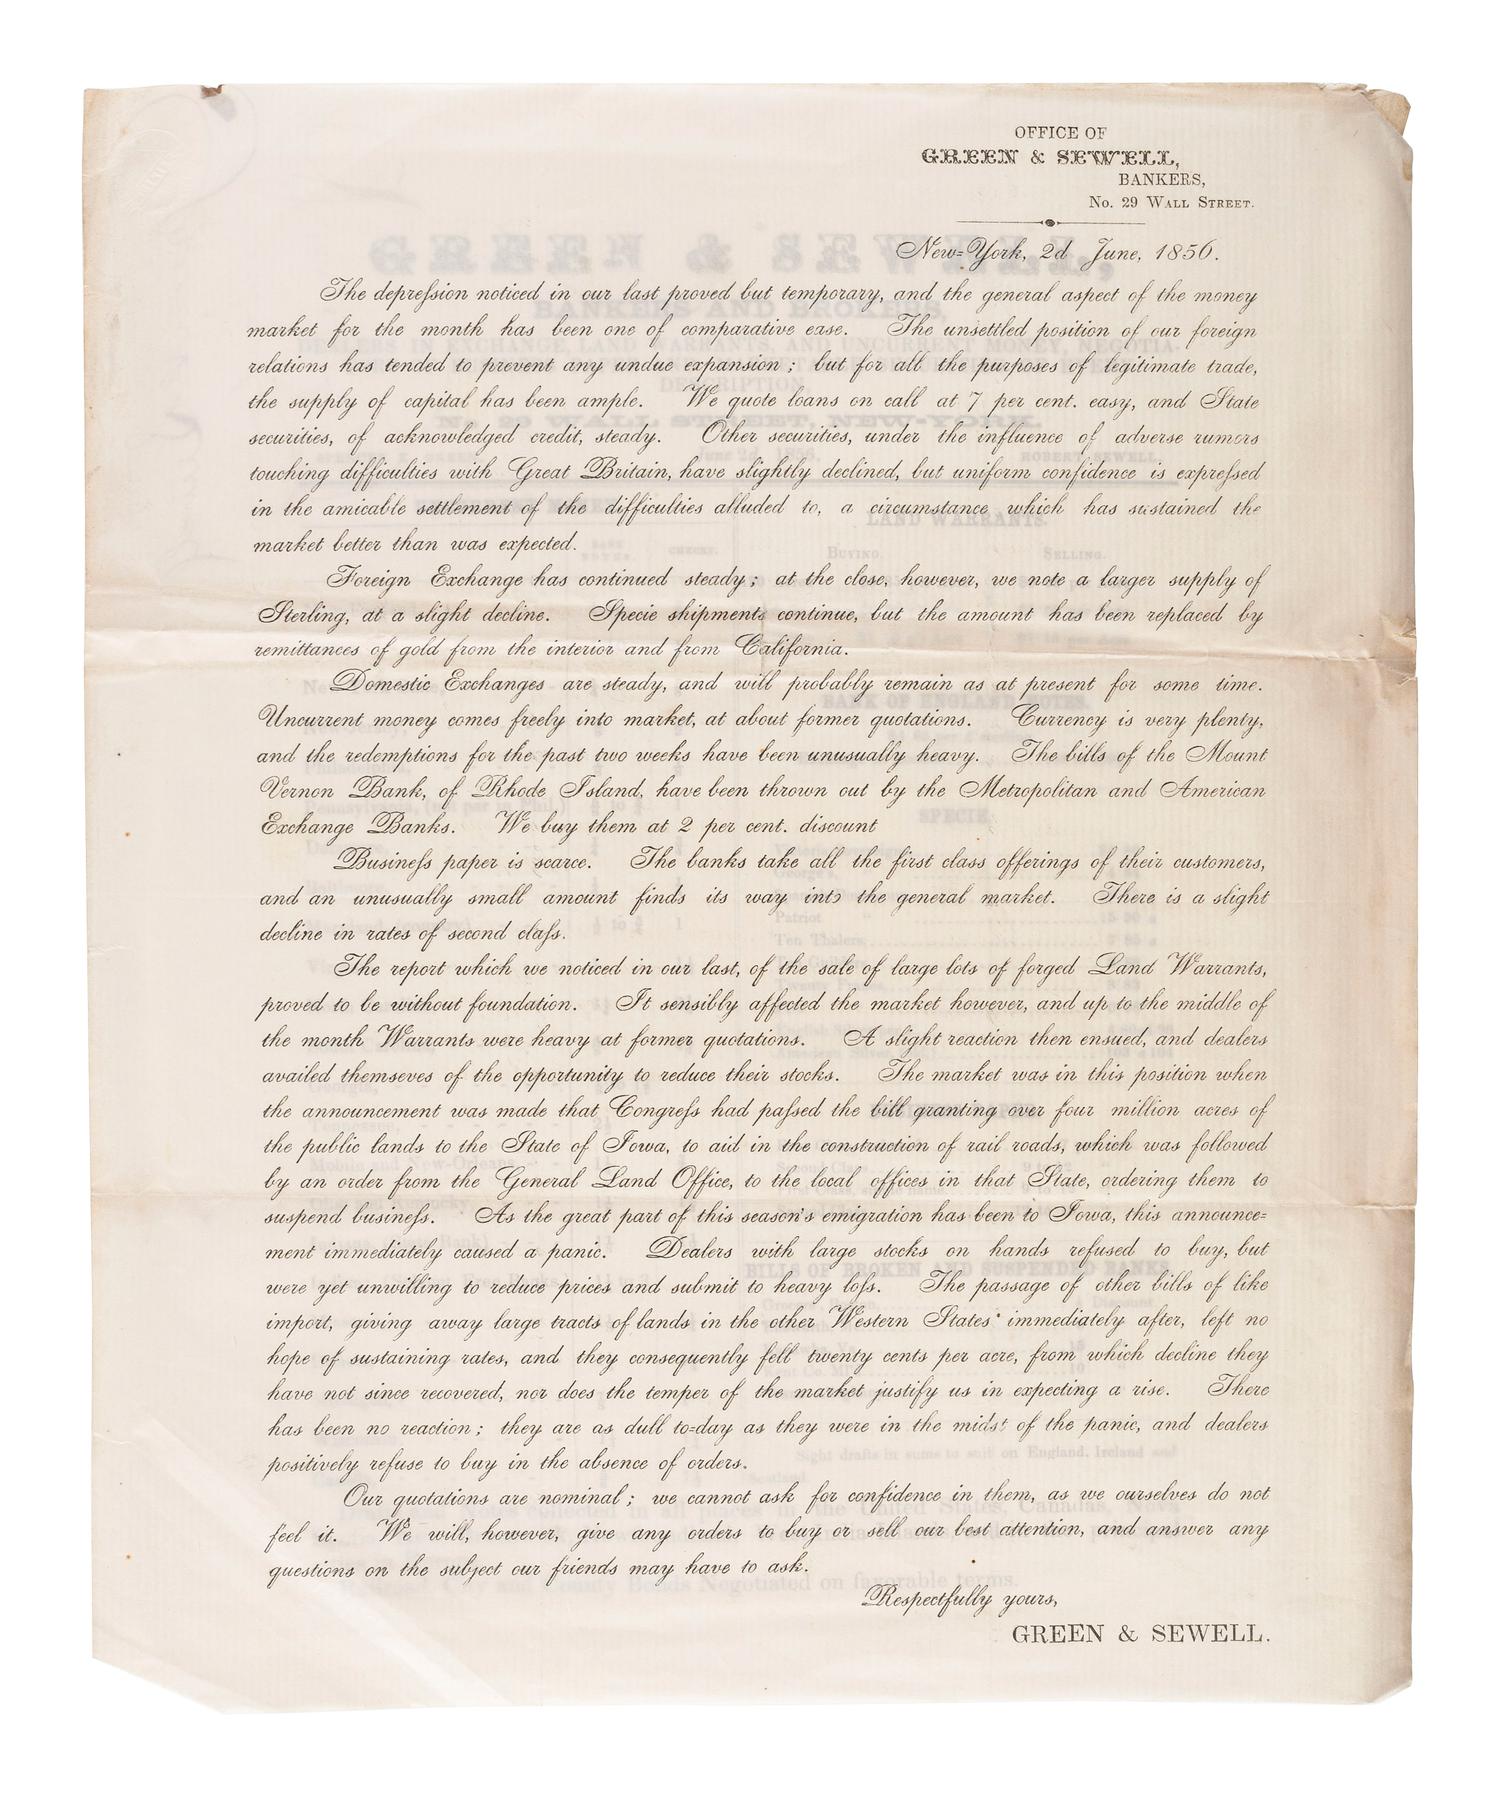 OFFICE OF
GREEN & SEWELL,
BANKERS,
No. 29 Wall Street.
New=York, 2d June, 1856.
The depreſsion noticed in our last proved but temporary, and the general aspect of the money
market for the month has been one of comparative ease. The unsettled position of our foreign
relations has tended to prevent any undue expansion; but for all the purposes of legitimate trade,
the supply of capital has been ample. We quote loans on call at 7 per cent. easy, and State
securities, of acknowledged credit, steady. Other securities, under the influence of adverse rumors
touching difficulties with Great Britain, have slightly declined, but uniform confidence is expreſsed
in the amicable settlement of the difficulties alluded to, a circumstance which has sustained the
market better than was expected.
Foreign Exchange has continued steady; at the close, however, we note a larger supply of
Sterling, at a slight decline. Specie shipments continue, but the amount has been replaced by
remittances of gold from the interior and from California.
Domestic Exchanges are steady, and will probably remain as at present for some time.
Uncurrent money comes freely into market, at about former quotations. Currency is very plenty,
and the redemptions for the past two weeks have been unusually heavy. The bills of the Mount
Vernon Bank, of Rhode Island, have been thrown out by the Metropolitan and American
Exchange Banks. We buy them at 2 per cent. discount
Busineſs paper is scarce. The banks take all the first class offerings of their customers,
and an unusually small amount finds its way into the general market. There is a slight
decline in rates of second claſs.
The report which we noticed in our last, of the sale of large lots of forged Land Warrants,
proved to be without foundation. It sensibly affected the market however, and up to the middle of
the month Warrants were heavy at former quotations. A slight reaction then ensued, and dealers
availed themseves of the opportunity to reduce their stocks. The market was in this position when
the announcement was made that Congreſs had paſsed the bill granting over four million acres of
the public lands to the State of Iowa, to aid in the construction of rail roads, which was followed
by an order from the General Land Office, to the local offices in that State, ordering them to
suspend busineſs. As the great part of this season's emigration has been to Iowa, this announce=
ment immediately caused a panic. Dealers with large stocks on hands refused to buy, but
were yet unwilling to reduce prices and submit to heavy loſs. The passage of other bills of like
import, giving away large tracts of lands in the other Western States immediately after, left no
hope of sustaining rates, and they consequently fell twenty cents per acre, from which decline they
have not since recovered, nor does the temper of the market justify us in expecting a rise. There
has been no reaction; they are as dull to=day as they were in the midst of the panic, and dealers
positively refuse to buy in the absence of orders.
Our quotations are nominal; we cannot ask for confidence in them, as we ourselves do not
feel it. We will, however, give any orders to buy or sell our best attention, and answer any
questions on the subject our friends may have to ask.
Respectfully yours,
GREEN & SEWELL.